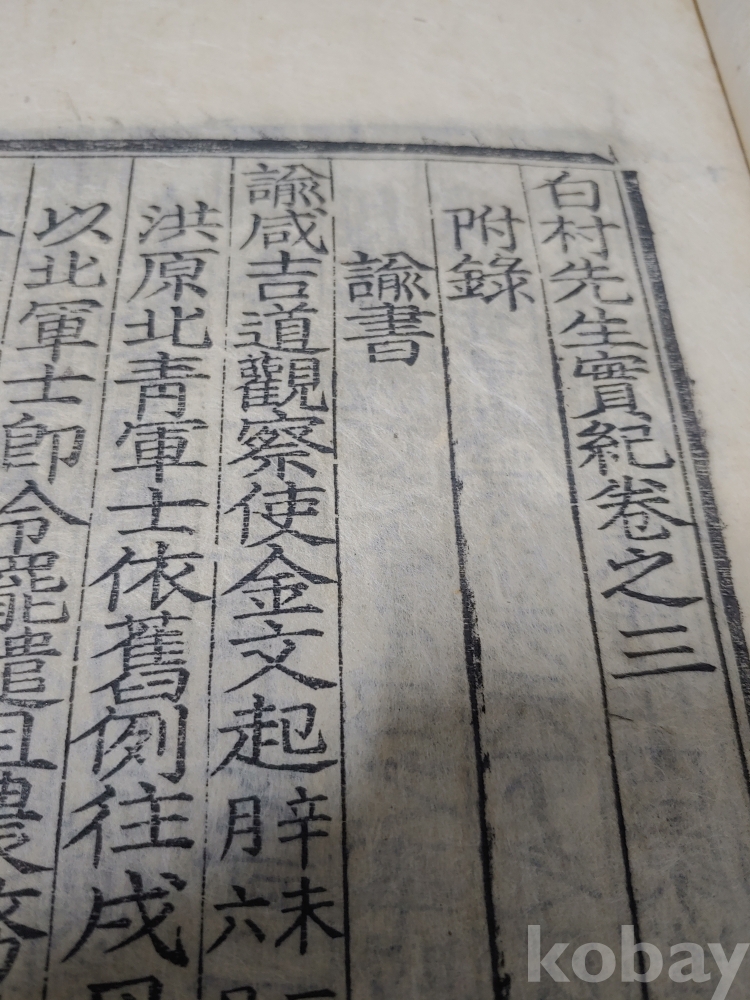 白村先生實紀卷之三
附錄
諭書
諭咸吉道觀察使金文起 辛未
月六
洪原北靑軍士依舊例往戍
以北軍士卽令罷遣且農務
kobay